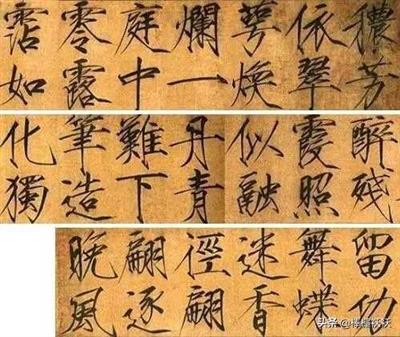 穠芳
依翠
萼煥
爛一
庭中
零露
霑如
醉殘
霞照
似融
丹青
難下
筆造
化獨
留功
舞蝶
迷香
徑翩
翩逐
晚風
头条